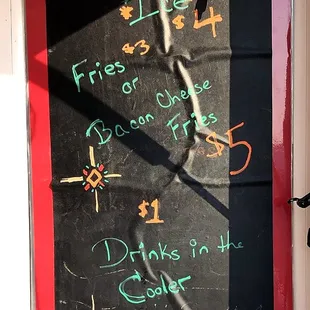 Ice
$3 $4
Fries
or
Bacon Cheese
Fries
$5
$1
Drinks in the
Cooler